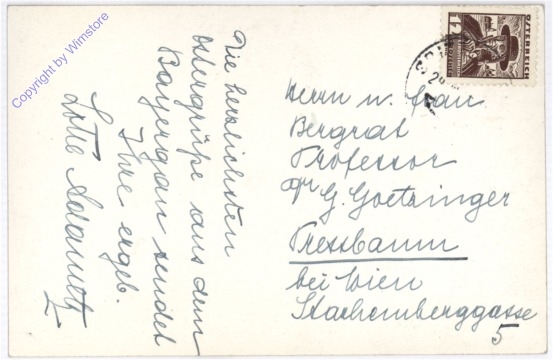 Die herzlichsten
Ostergrüße aus dem
sendet
Ihre ergeb.
Lotte
Herrn u. Frau
Bergrat
Professor
Dr G. Goetzinger
Pressbaum
bei Wien
Starhemberggasse
5
ÖSTERREICH
Copyright by Wimstore